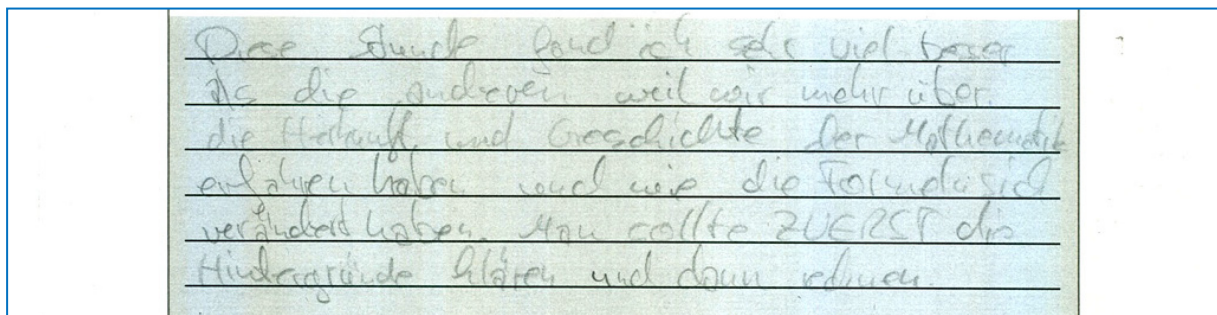 Diese Stunde fand ich sehr viel besser
als die anderen weil wir mehr über
die Herkunft und Geschichte der Mathematik
erfahren haben und wie die Formeln sich
verändert haben. Man sollte ZUERST die
Hindergründe klären und dann rechnen.